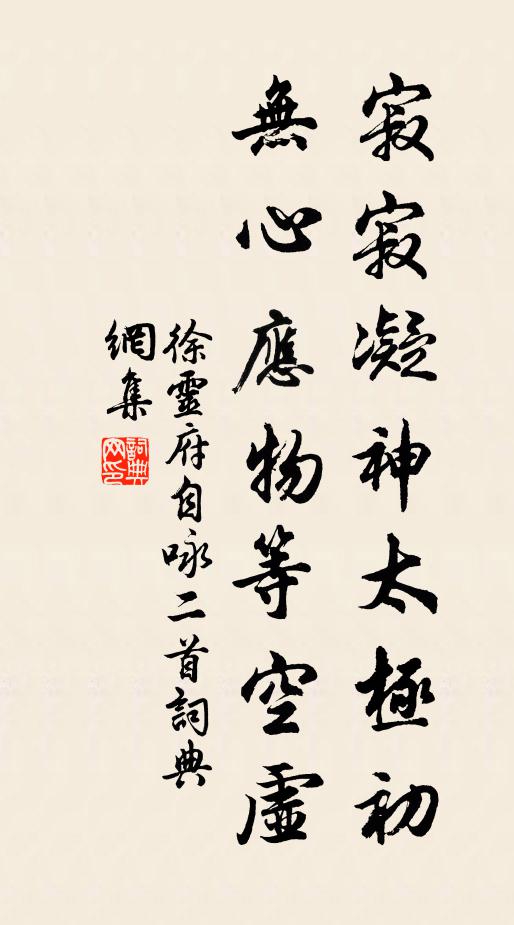 寂寂凝神太極初
無心應物等空虛
徐靈府自咏二首詞典
網集
詞典
网印